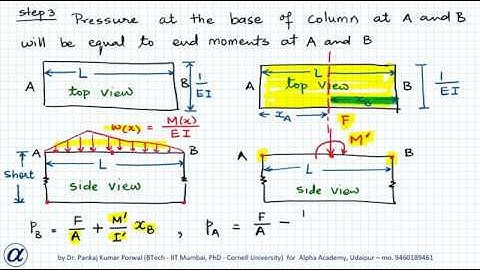 step 3 Pressure at the base of column at A and B
will be equal to end moments at A and B
A L B 1/EI
top view
L top view 1/EI
A x_A x_B B
F
M'
w(x) = M(x)/EI
A L B
Short
side view
A L B
side view
P_B = F/A + M'/I' x_B , P_A = F/A −
α by Dr. Pankaj Kumar Porwal (BTech - IIT Mumbai, PhD - Cornell University) for Alpha Academy, Udaipur – mo. 9460189461